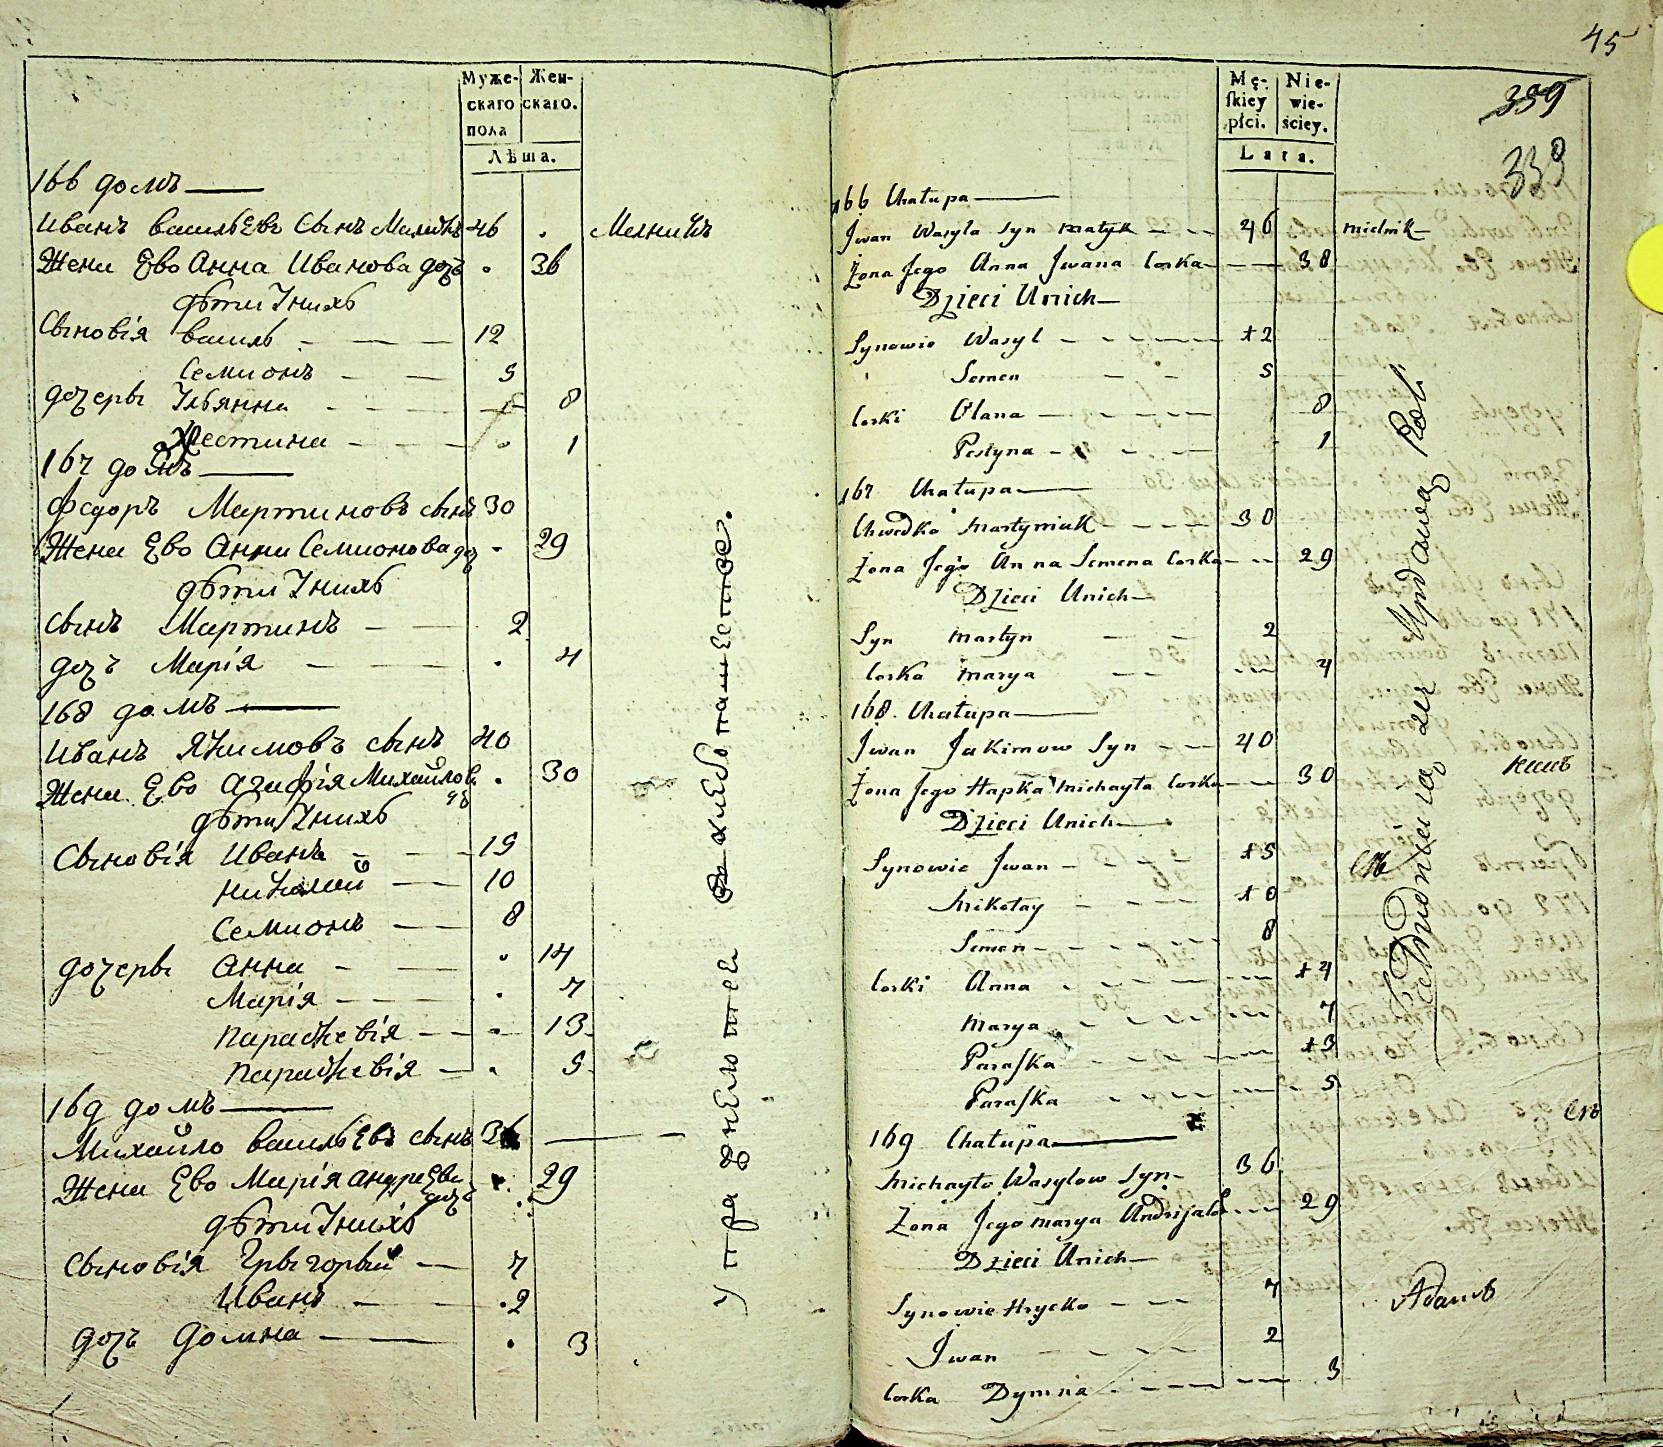 Муже- Жен-
скаго скаго.
пола
Лѣта.
166 домъ
Иванъ васильЕвъ Сынъ 46 . Мелникъ
Жена Ево Анна Иванова доч . 36
дѣти Унихъ
Сыновія василь 12
Семионъ 5
дочеры Ульянна 8
Хрестина . 1
167 домъ
Федоръ Мартиновъ сынъ 30
Жена Ево Анна Семионова доч . 29
дѣти Унихъ
сынъ Мартинъ 2
дочъ Марія . 4
168 домъ
Иванъ Якимовъ сынъ 40
Жена Ево Агафія Михайлов . 30
дѣти Унихъ
Сыновія Иванъ 15
николай 10
Семионъ 8
дочеры Анна . 14
Марія . 7
параскевія . 13
параскевія . 5
169 домъ
Михайло васильЕвъ сынъ 36
Жена Ево Марія андреЕва дочъ . 29
дѣти Унихъ
Сыновія Григорый 7
Иванъ . 2
дочъ Домна . 3
45
359
339
Mę- Nie-
skiey wie-
płci. ściey.
Lata.
166 Chałupa
Jwan Wasyla Syn Matyk 46 mielnik
Żona Jego Anna Jwana Corka 38
Dzieci Unich
Synowie Wasyl 12
Semen 5
Corki Olana 8
Pestyna 1
167 Chałupa
Chwedko Martyniuk 30
Żona Jego Anna Semena Corka 29
Dzieci Unich
Syn Martyn 2
Corka Marya 4
168. Chałupa
Jwan Jakimow Syn 40
Żona Jego Hapka Michayła Corka 30
Dzieci Unich
Synowie Jwan 15
Mikołay 10
Semen 8
Corki Anna 14
Marya 7
Paraska 13
Paraska 5
169 Chałupa
Michayło Wasylow Syn 36
Żona Jego Marya Andrijals 29
Dzieci Unich
Synowie Hrycko 7
Jwan 2
Corka Dymna 3